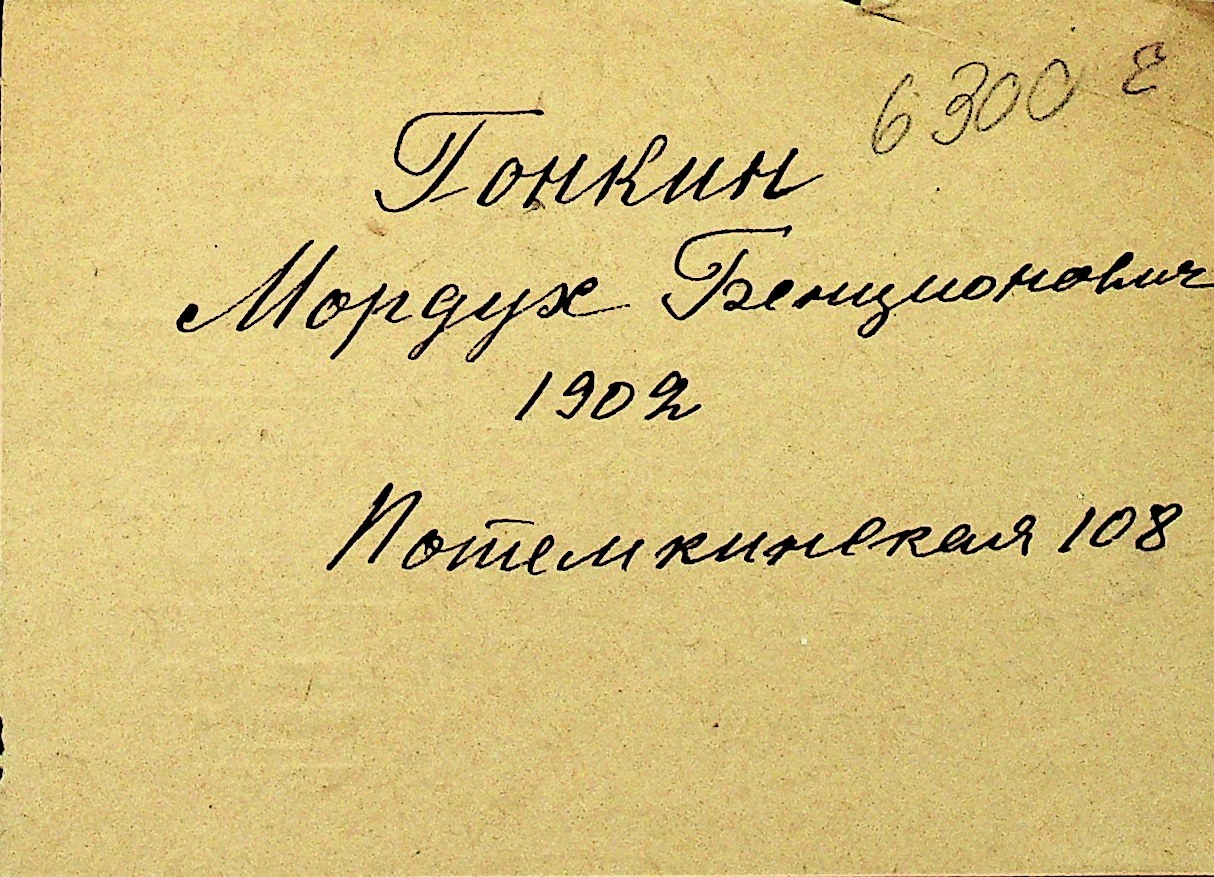 6300 е
Гонкин
Мордух Бенционович
1902
Потемкинская 108